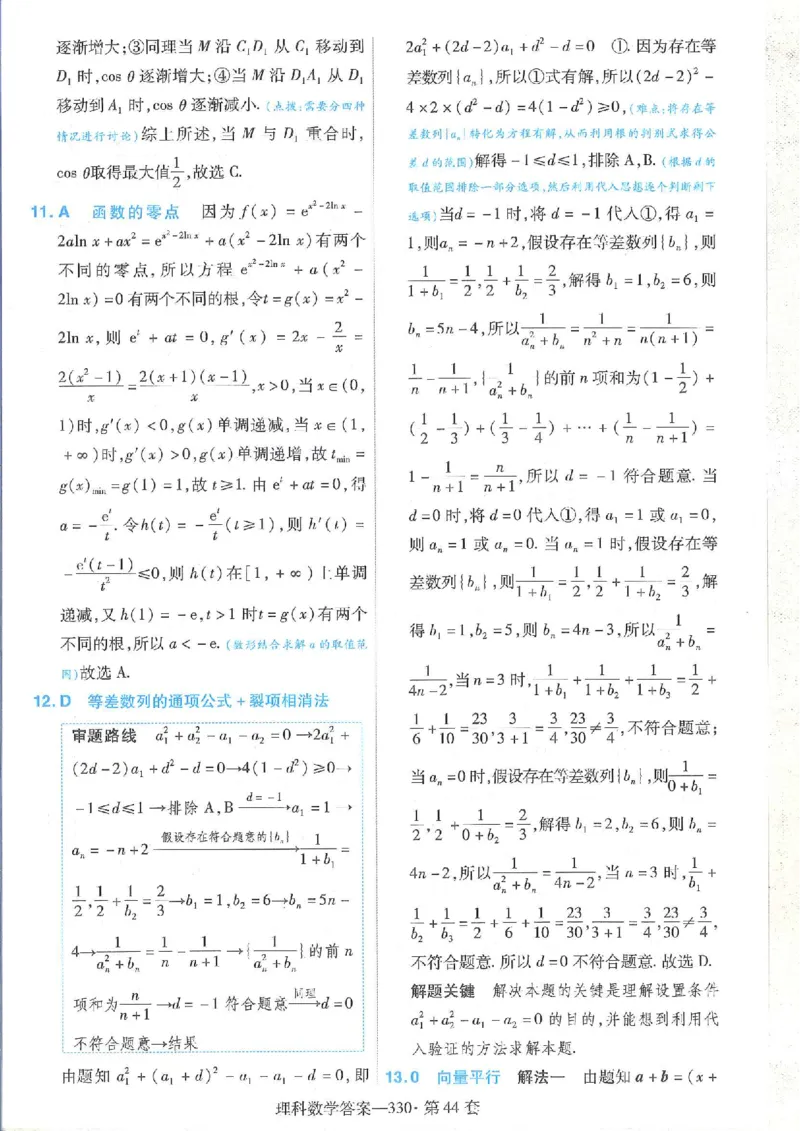 逐渐增大;③同理当 M 沿 C₁D₁ 从 C₁ 移动到
D₁ 时,cos θ 逐渐增大;④当 M 沿 D₁A₁ 从 D₁
移动到 A₁ 时,cos θ 逐渐减小.(点拨:需要分四种
情况进行讨论)综上所述,当 M 与 D₁ 重合时,
cos θ取得最大值1/2,故选 C.
11. A 函数的零点 因为 f(x) = e^(x²-2ln x) -
2aln x+ax² = e^(x²-2ln x) + a(x² - 2ln x)有两个
不同的零点,所以方程 e^(x²-2ln x) + a(x² -
2ln x) =0 有两个不同的根,令t=g(x) =x² -
2ln x,则 e^t + at = 0, g′(x) = 2x - 2/x =
2(x²-1)/x = 2(x+1)(x-1)/x, x>0,当 x∈(0,
1)时,g′(x) <0,g(x)单调递减,当 x∈(1,
+∞)时,g′(x) >0,g(x)单调递增,故 t_min =
g(x)_min =g(1) =1,故 t≥1. 由 e^t + at =0,得
a= - e^t/t. 令h(t) = - e^t/t (t≥1),则 h′(t) =
- e^t(t-1)/t² ≤0,则 h(t)在[1, +∞)上单调
递减,又 h(1) = -e,t>1 时t=g(x)有两个
不同的根,所以 a< -e.(数形结合求解 a 的取值范
围)故选 A.
12. D 等差数列的通项公式 + 裂项相消法
审题路线 a₁²+a₂²-a₁-a₂=0→2a₁²+
(2d-2)a₁+d²-d=0→4(1-d²)≥0→
-1≤d≤1→排除 A,B —d=-1→a₁=1→
aₙ= -n+2 —假设存在符合题意的{bₙ}→ 1/(1+b₁) =
1/2, 1/2+1/b₂=2/3→b₁=1,b₂=6→bₙ=5n-
4→1/(aₙ²+bₙ)=1/n-1/(n+1)→{1/(aₙ²+bₙ)}的前 n
项和为n/(n+1)→d= -1 符合题意—同理→d=0
不符合题意→结果
由题知 a₁² + (a₁+d)² - a₁ - a₁ - d=0,即
2a₁²+(2d-2)a₁+d²-d=0 ①. 因为存在等
差数列{aₙ},所以①式有解,所以(2d-2)² -
4×2×(d²-d)=4(1-d²)≥0,(难点:将存在等
差数列{aₙ}转化为方程有解,从而利用根的判别式求得公
差 d 的范围)解得 -1≤d≤1,排除 A,B.(根据 d 的
取值范围排除一部分选项,然后利用代入思想逐个判断剩下
选项)当d= -1 时,将 d= -1 代入①,得 a₁=
1,则aₙ= -n+2,假设存在等差数列{bₙ},则
1/(1+b₁)=1/2, 1/2+1/b₂=2/3,解得 b₁=1,b₂=6,则
bₙ=5n-4,所以1/(aₙ²+bₙ)=1/(n²+n)=1/(n(n+1))=
1/n-1/(n+1),{1/(aₙ²+bₙ)}的前 n 项和为(1-1/2)+
(1/2-1/3)+(1/3-1/4)+…+(1/n-1/(n+1))=
1-1/(n+1)=n/(n+1),所以 d= -1 符合题意. 当
d=0 时,将 d=0 代入①,得 a₁=1 或 a₁=0,
则 aₙ=1 或 aₙ=0. 当 aₙ=1 时,假设存在等
差数列{bₙ},则1/(1+b₁)=1/2, 1/2+1/(1+b₂)=2/3,解
得 b₁=1,b₂=5,则 bₙ=4n-3,所以1/(aₙ²+bₙ)=
1/(4n-2),当 n=3 时,1/(1+b₁)+1/(1+b₂)+1/(1+b₃)=1/2+
1/6+1/10=23/30, 3/(3+1)=3/4, 23/30≠3/4,不符合题意;
当 aₙ=0 时,假设存在等差数列{bₙ},则1/(0+b₁)=
1/2, 1/2+1/(0+b₂)=2/3,解得 b₁=2,b₂=6,则 bₙ=
4n-2,所以1/(aₙ²+bₙ)=1/(4n-2),当 n=3 时,1/b₁+
1/b₂+1/b₃=1/2+1/6+1/10=23/30, 3/(3+1)=3/4, 23/30≠3/4,
不符合题意. 所以 d=0 不符合题意. 故选 D.
解题关键 解决本题的关键是理解设置条件
a₁²+a₂²-a₁-a₂=0 的目的,并能想到利用代
入验证的方法求解本题.
13. 0 向量平行 解法一 由题知 a+b=(x+
理科数学答案—330·第 44 套